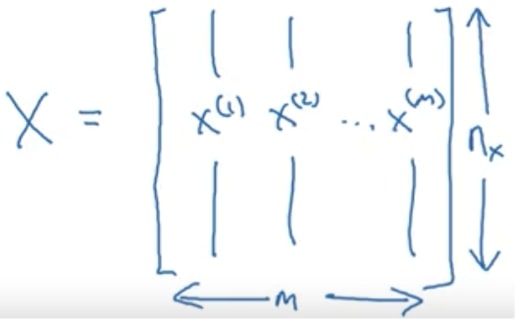 X = [ x^(1) x^(2) ... x^(m) ] n_x
m